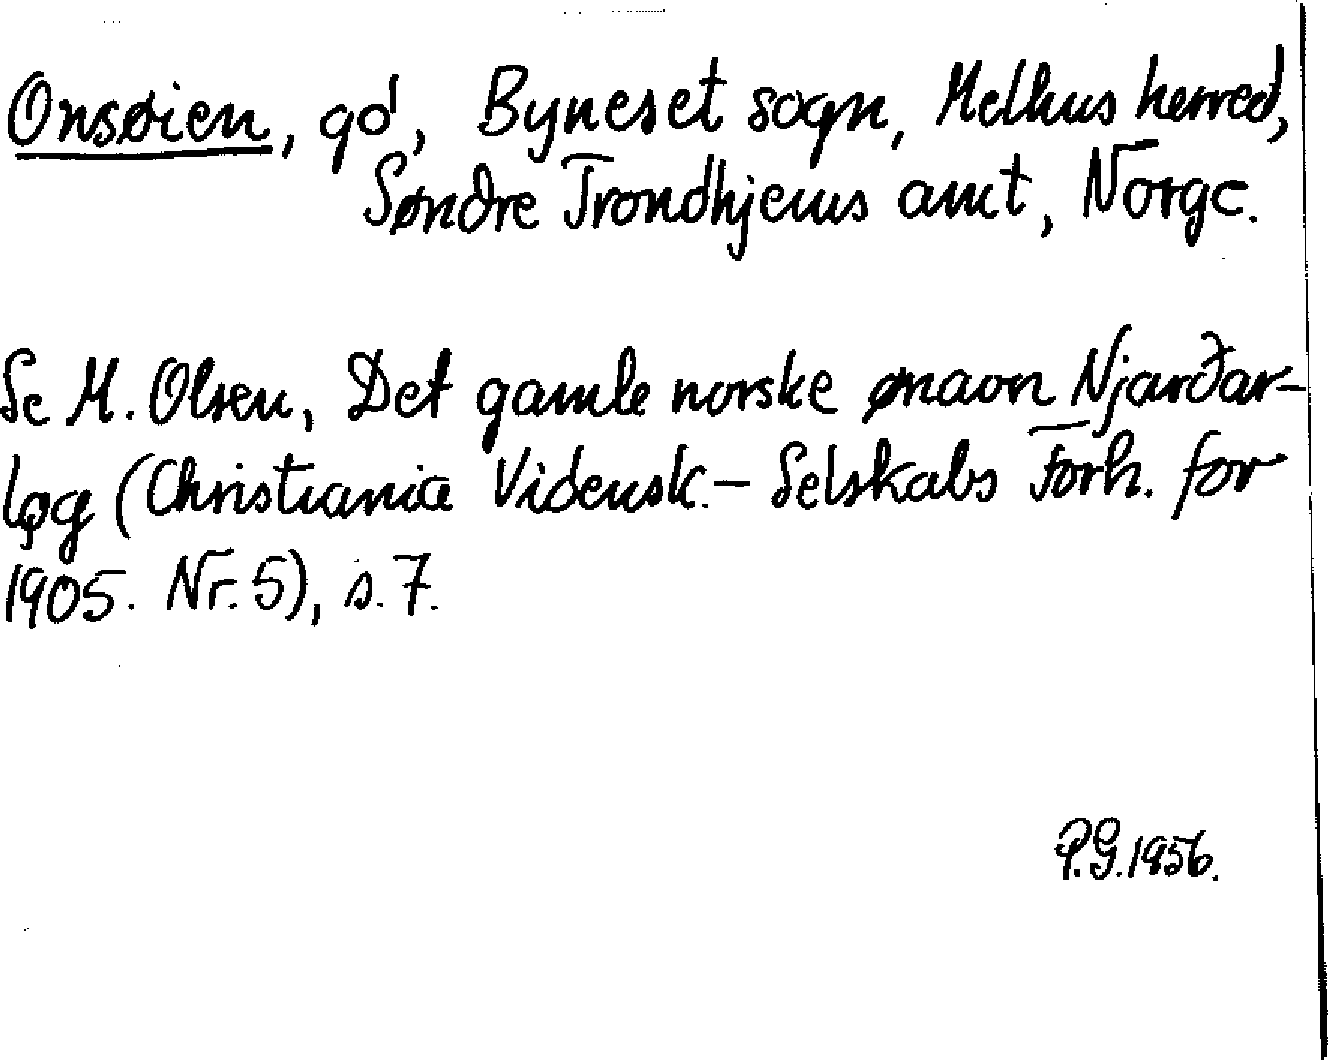 Onsøien, gd, Byneset sogn, Melhus herred,
Søndre Trondhjems amt, Norge.
Se M. Olsen, Det gamle norske ønavn Njarðar-
lǫg (Christiania Vidensk.- Selskabs Forh. for
1905. Nr. 5), s. 7.
P.G. 1956.